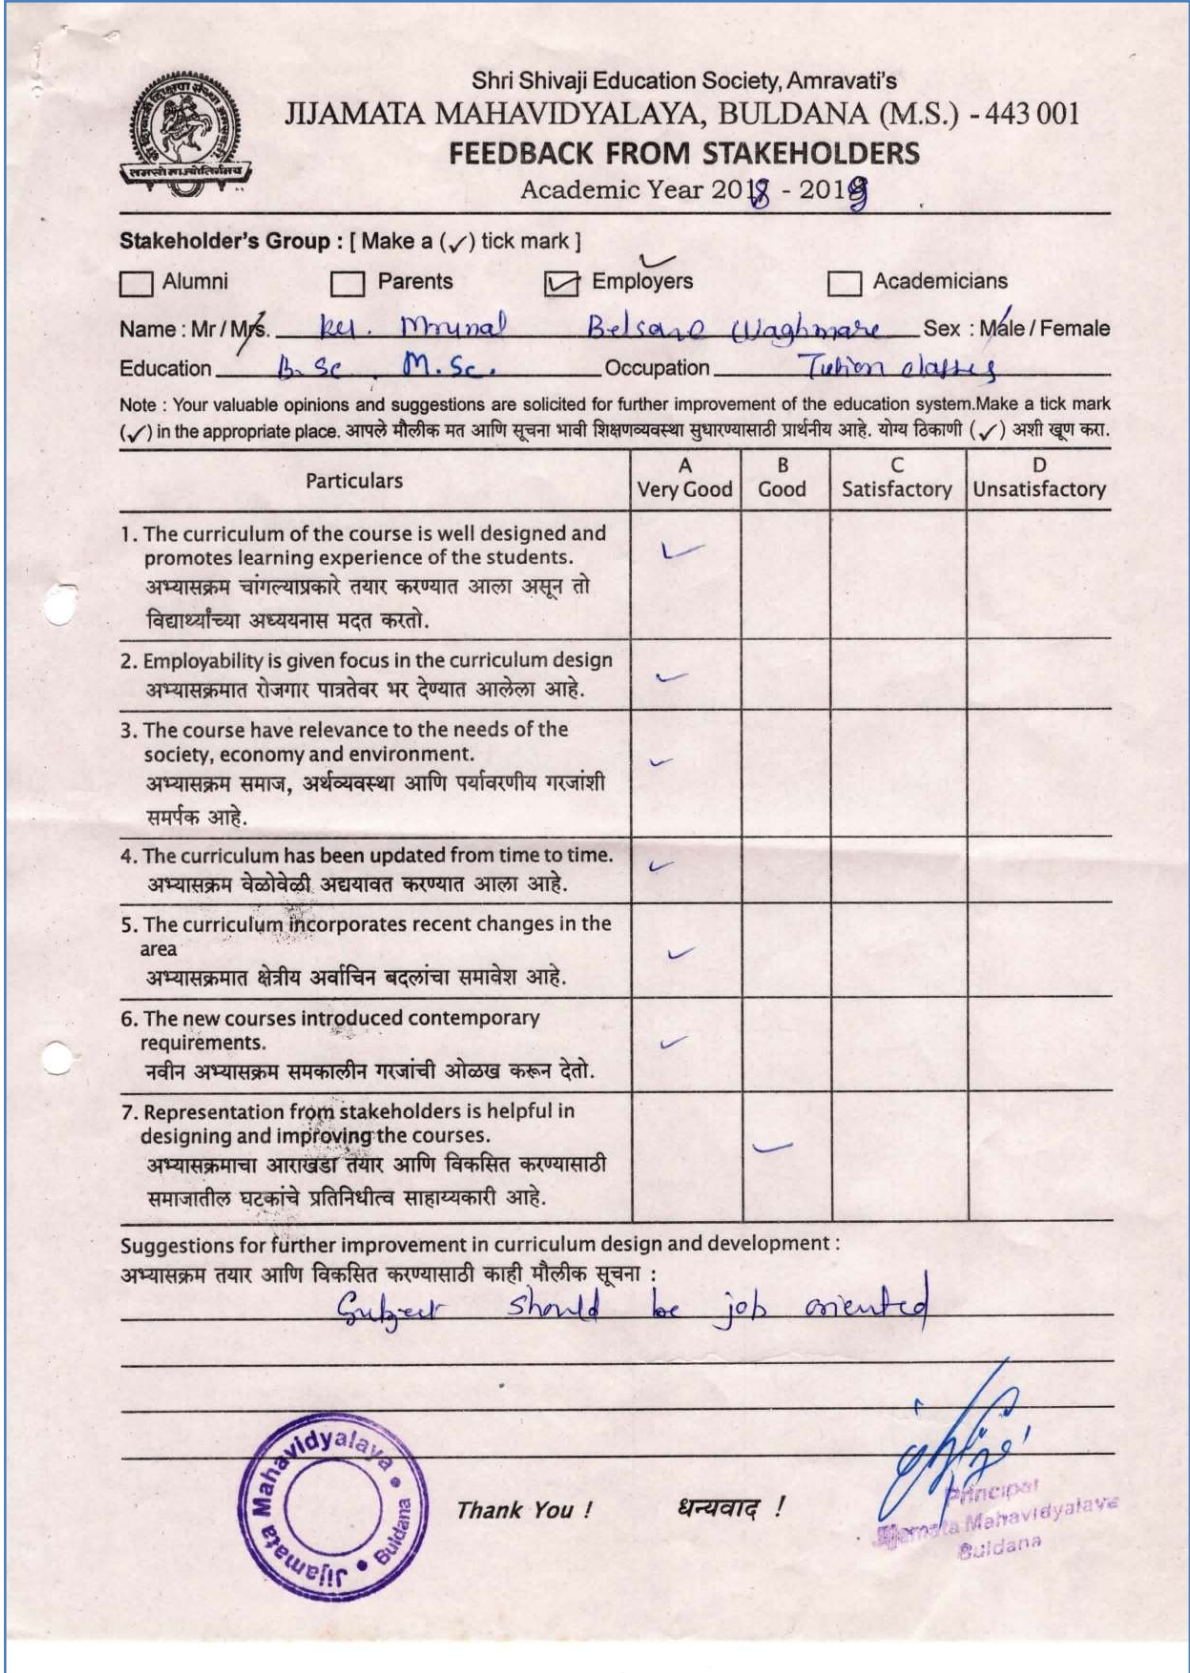 Shri Shivaji Education Society, Amravati's
JIJAMATA MAHAVIDYALAYA, BULDANA (M.S.) - 443 001
FEEDBACK FROM STAKEHOLDERS
Academic Year 2018 - 2019
Stakeholder's Group : [ Make a (✓) tick mark ]
Alumni Parents ✓ Employers Academicians
Name : Mr / Mrs. Ku. Mrunal Belsare Waghmare Sex : Male / Female
Education B.Sc. M.Sc. Occupation Tution classes
Note : Your valuable opinions and suggestions are solicited for further improvement of the education system.Make a tick mark
(✓) in the appropriate place. आपले मौलीक मत आणि सूचना भावी शिक्षणव्यवस्था सुधारण्यासाठी प्रार्थनीय आहे. योग्य ठिकाणी (✓) अशी खूण करा.
Particulars A Very Good B Good C Satisfactory D Unsatisfactory
1. The curriculum of the course is well designed and
promotes learning experience of the students. ✓
अभ्यासक्रम चांगल्याप्रकारे तयार करण्यात आला असून तो
विद्यार्थ्यांच्या अध्ययनास मदत करतो.
2. Employability is given focus in the curriculum design
अभ्यासक्रमात रोजगार पात्रतेवर भर देण्यात आलेला आहे. ✓
3. The course have relevance to the needs of the
society, economy and environment. ✓
अभ्यासक्रम समाज, अर्थव्यवस्था आणि पर्यावरणीय गरजांशी
समर्पक आहे.
4. The curriculum has been updated from time to time. ✓
अभ्यासक्रम वेळोवेळी अद्ययावत करण्यात आला आहे.
5. The curriculum incorporates recent changes in the
area ✓
अभ्यासक्रमात क्षेत्रीय अर्वाचिन बदलांचा समावेश आहे.
6. The new courses introduced contemporary
requirements. ✓
नवीन अभ्यासक्रम समकालीन गरजांची ओळख करून देतो.
7. Representation from stakeholders is helpful in
designing and improving the courses. ✓
अभ्यासक्रमाचा आराखडा तयार आणि विकसित करण्यासाठी
समाजातील घटकांचे प्रतिनिधीत्व साहाय्यकारी आहे.
Suggestions for further improvement in curriculum design and development :
अभ्यासक्रम तयार आणि विकसित करण्यासाठी काही मौलीक सूचना :
Subject should be job oriented
Jijamata Mahavidyalaya • Buldana •
Thank You ! धन्यवाद !
Principal
Jijamata Mahavidyalaya
Buldana